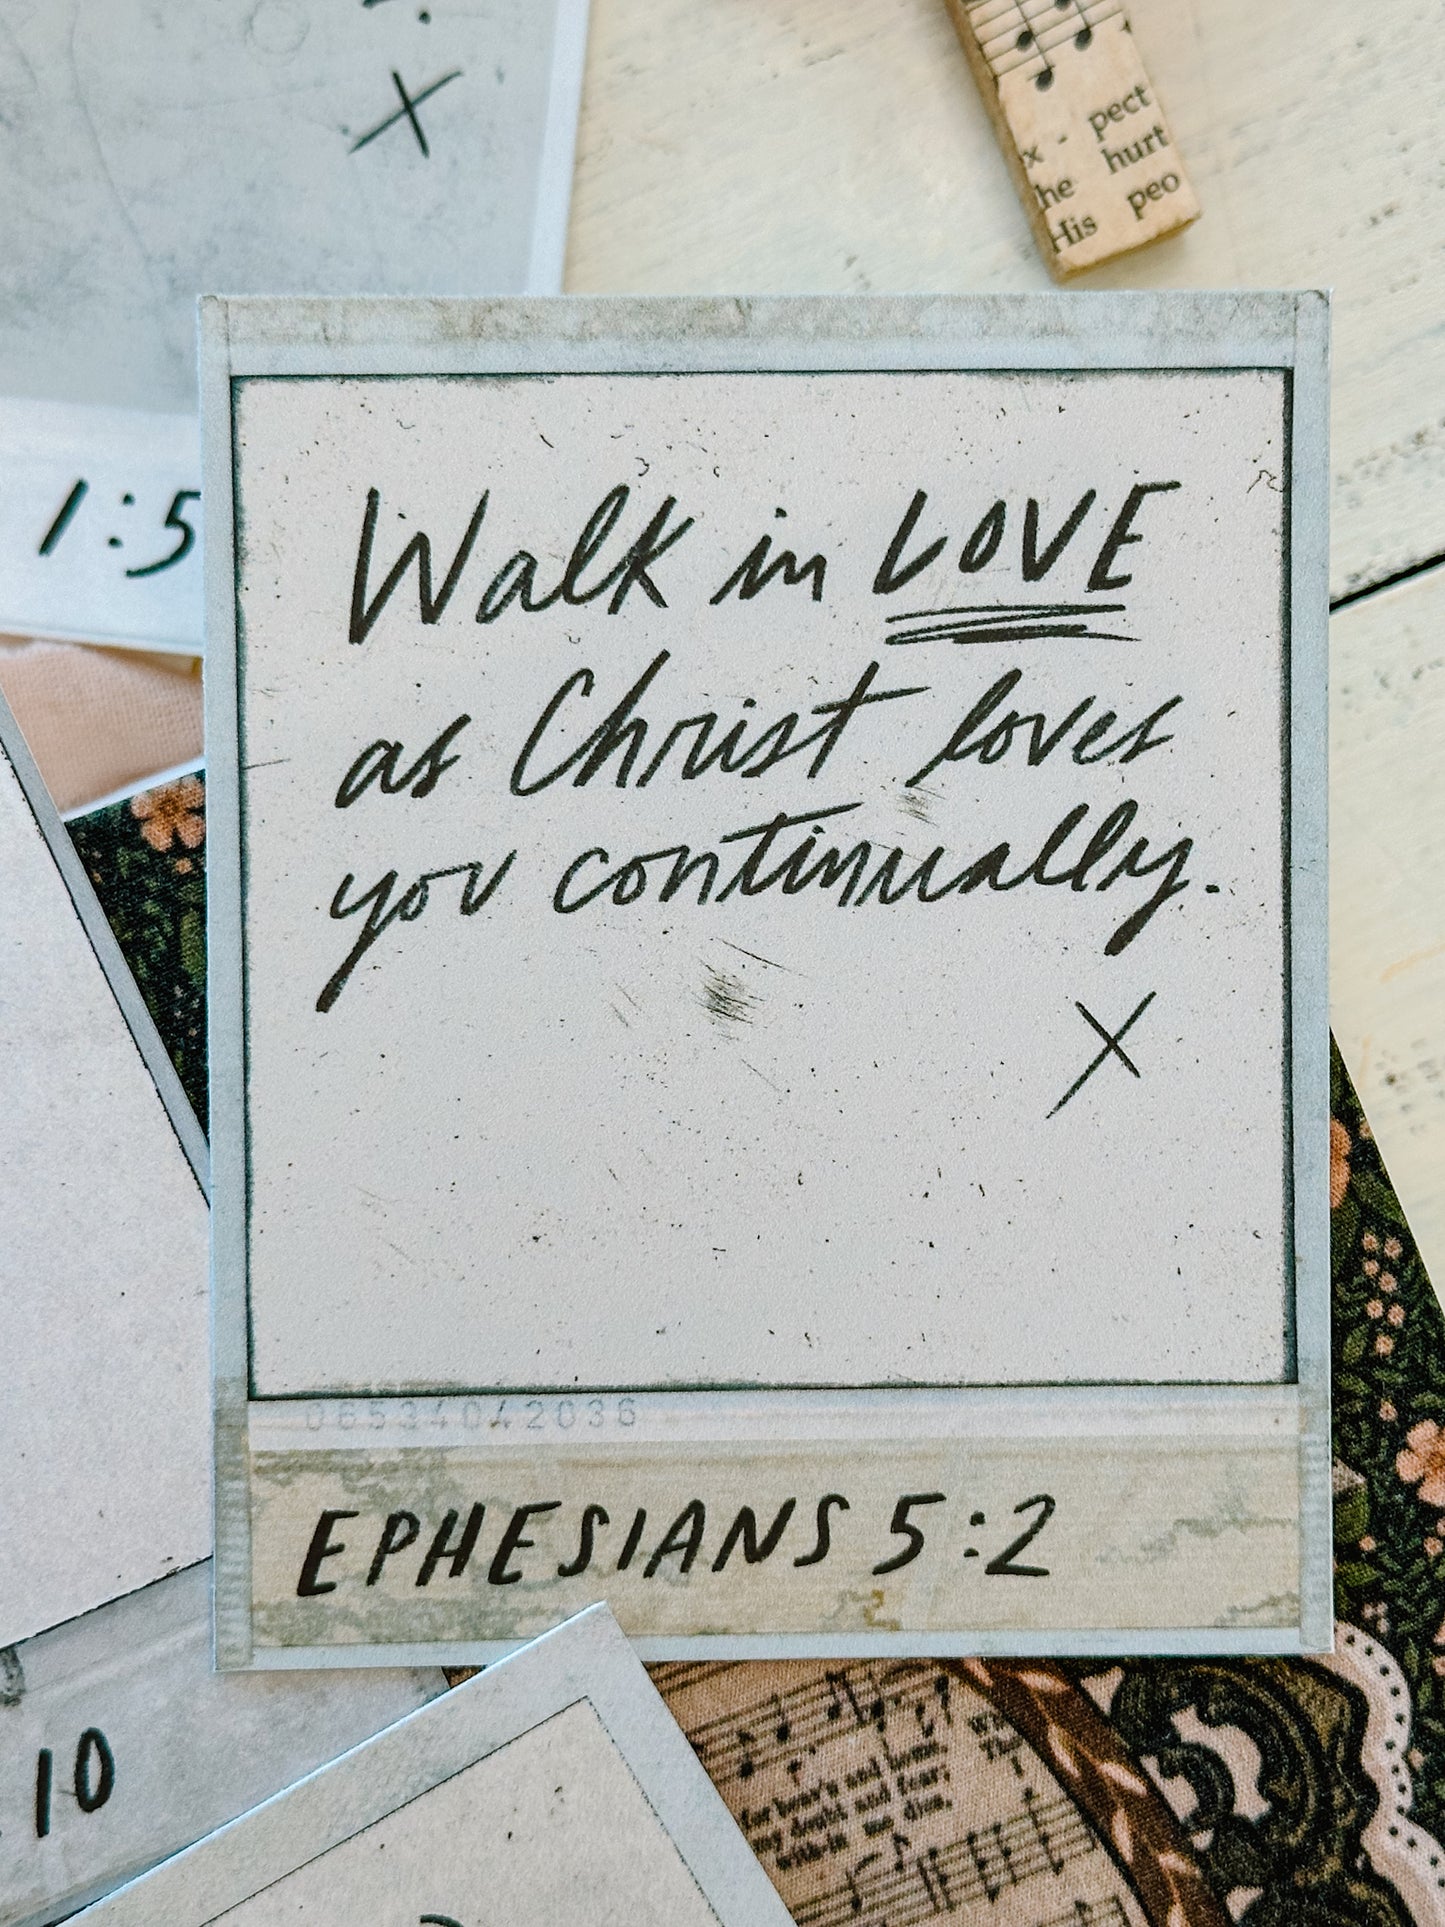 x
x - pect
he hurt
His peo
1:5
Walk in LOVE
as Christ loves
you continually.
X
06534042036
EPHESIANS 5:2
10
for heav'n and home
my doubt and fear,
with-in me dies.